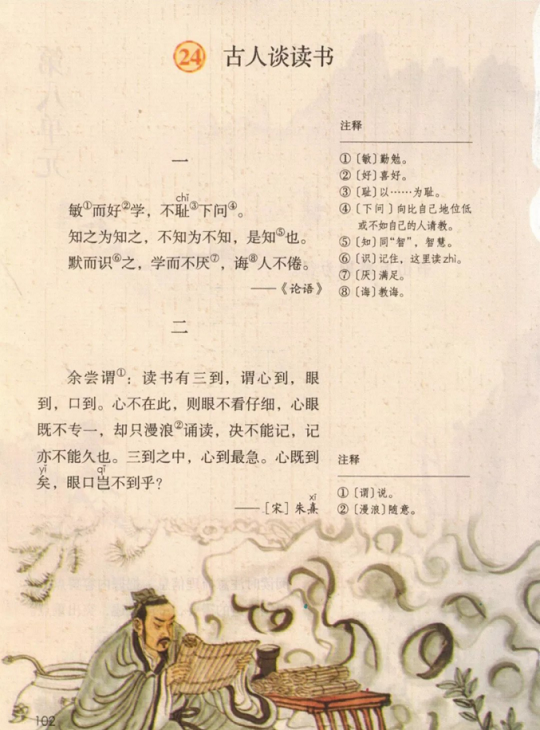 24 古人谈读书
一
敏①而好②学，不耻③下问④。
chǐ
知之为知之，不知为不知，是知⑤也。
默而识⑥之，学而不厌⑦，诲⑧人不倦。
——《论语》
注释
①〔敏〕勤勉。
②〔好〕喜好。
③〔耻〕以……为耻。
④〔下问〕向比自己地位低
或不如自己的人请教。
⑤〔知〕同“智”，智慧。
⑥〔识〕记住，这里读zhì。
⑦〔厌〕满足。
⑧〔诲〕教诲。
二
余尝谓①：读书有三到，谓心到，眼
到，口到。心不在此，则眼不看仔细，心眼
既不专一，却只漫浪②诵读，决不能记，记
亦不能久也。三到之中，心到最急。心既到
yǐ qǐ
矣，眼口岂不到乎？
xī
——［宋］朱熹
注释
①〔谓〕说。
②〔漫浪〕随意。
102